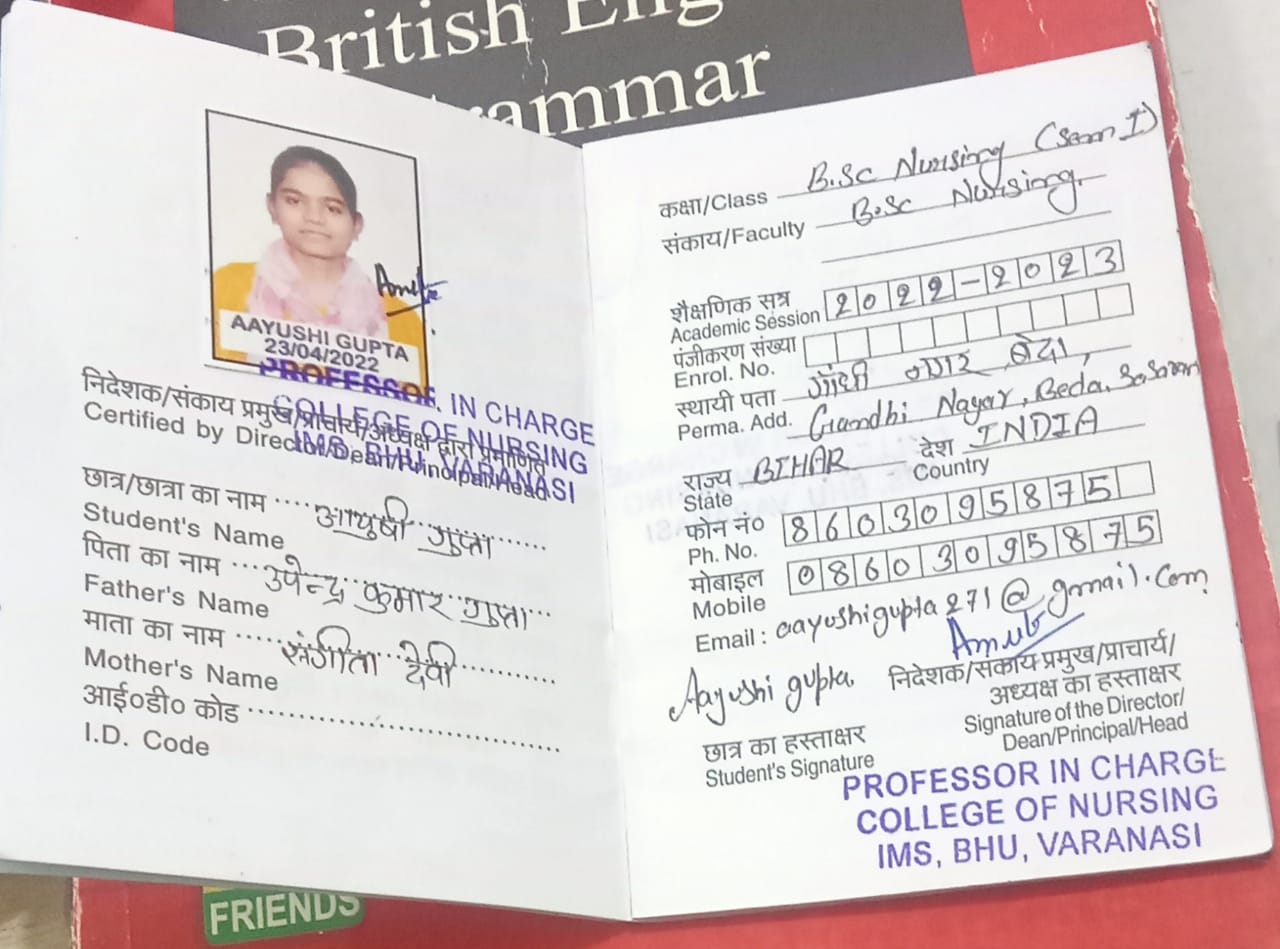 British Eng
rammar
AAYUSHI GUPTA
23/04/2022
PROFESSOR IN CHARGE
COLLEGE OF NURSING
IMS, BHU, VARANASI
निदेशक/संकाय प्रमुख/प्राचार्य/अध्यक्ष द्वारा प्रमाणित
Certified by Director/Dean/Principal/Head
छात्र/छात्रा का नाम आयुषी गुप्ता
Student's Name
पिता का नाम उपेन्द्र कुमार गुप्ता
Father's Name
माता का नाम संगीता देवी
Mother's Name
आई०डी० कोड
I.D. Code
कक्षा/Class B.Sc Nursing (Sem I)
संकाय/Faculty B.Sc Nursing.
शैक्षणिक सत्र
Academic Session 2022-2023
पंजीकरण संख्या
Enrol. No.
स्थायी पता गाँधी नगर बेदा,
Perma. Add. Gandhi Nagar, Beda, Sasaram
राज्य BIHAR देश INDIA
State Country
फोन नं० 8603095875
Ph. No.
मोबाइल 08603095875
Mobile
Email : aayushigupta271@gmail.com
Aayushi gupta
छात्र का हस्ताक्षर
Student's Signature
निदेशक/संकाय प्रमुख/प्राचार्य/
अध्यक्ष का हस्ताक्षर
Signature of the Director/
Dean/Principal/Head
PROFESSOR IN CHARGE
COLLEGE OF NURSING
IMS, BHU, VARANASI
FRIENDS